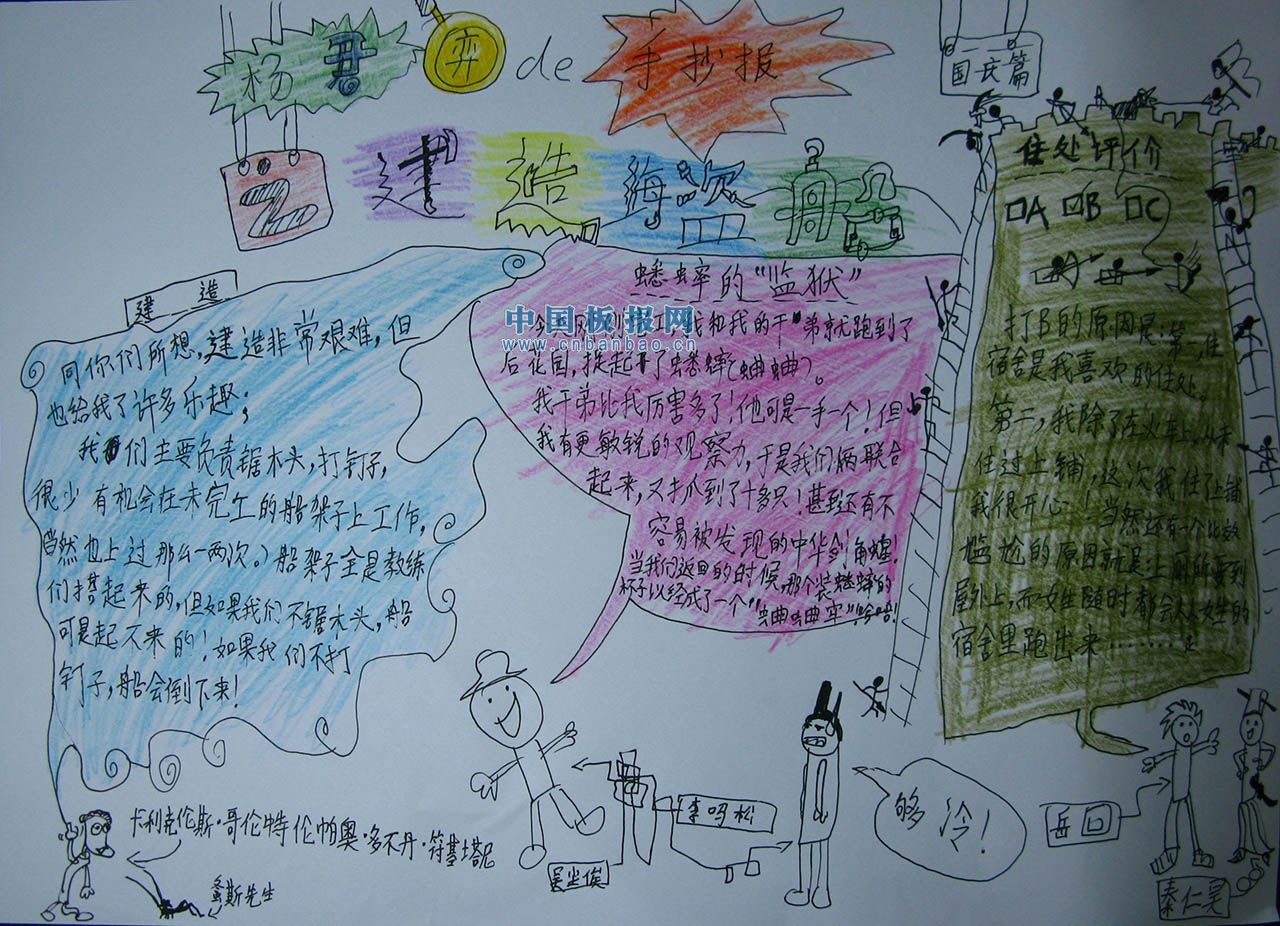 杨君弈de手抄报
国庆篇
2
建造海盗船
建造
同你们所想,建造非常艰难,但
也给我了许多乐趣;
我们主要负责锯木头,打钉子,
很少有机会在未完工的船架子上工作,
(当然也上过那么一两次。)船架子全是教练
们搭起来的,但如果我们不锯木头,船
可是起不来的!如果我们不打
钉子,船会倒下来!
蟋蟀的“监狱”
我和我的干弟就跑到了
后花园,捉起了蟋蟀(蛐蛐)。
我干弟比我厉害多了!他可是一手一个!但
我有更敏锐的观察力,于是我们俩联合
起来,又抓到了十多只!甚至还有不
容易被发现的中华剑角蝗!
当我们返回的时候,那个装蟋蟀的
杯子以经成了一个“
蛐蛐牢”哈哈!
中国板报网
www.cnbanbao.cn
住处评价
A B C
打B的原因是:第一,住
宿舍是我喜欢的住处。
第二,我除了在火车上从未
住过上铺,这次我住了上铺
我很开心!当然还有一个比较
尴尬的原因就是:上厕所要到
屋外上,而女生随时都会从女生的
宿舍里跑出来………
卡利克伦斯·哥伦特伦帕奥·多不丹·符基士塔尼
蚤斯先生
李吗松
够冷!
岳回
秦仁昊